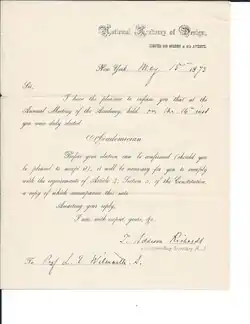 National Academy of Design,
CORNER 23D STREET & 4TH AVENUE.
New York May 15th 1873
Sir,
I have the pleasure to inform you that at the
Annual Meeting of the Academy, held on the 14th inst
you were duly elected
Academician
Before your election can be confirmed (should you
be pleased to accept it), it will be necessary for you to comply
with the requirements of Article 2, Section 3, of the Constitution
a copy of which accompanies this note.
Awaiting your reply,
I am, with respect yours, &c.
T. Addison Richards
Corresponding Secretary N.A.
To Prof L. E. Wilmarth.